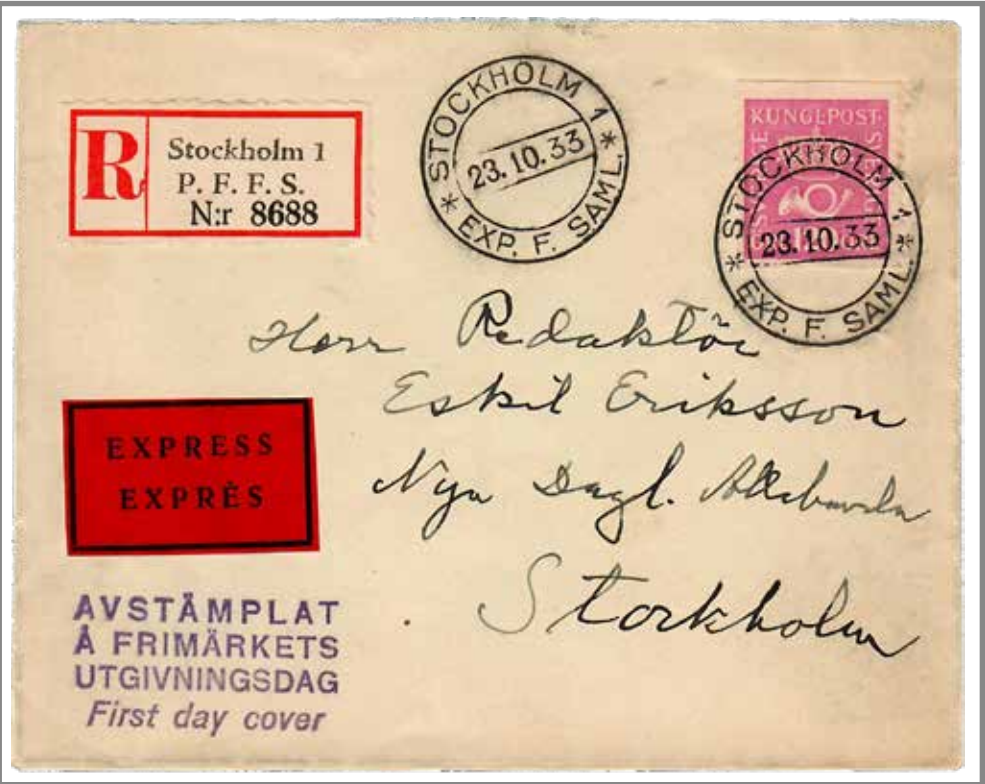 R
Stockholm 1
P. F. F. S.
N:r 8688
STOCKHOLM 1
23.10.33
* EXP. F. SAML. *
KUNGL.POST-
STOCKHOLM 1
23.10.33
* EXP. F. SAML. *
Herr Redaktör
Eskil Eriksson
Nya Dagl. Allehanda
Stockholm
EXPRESS
EXPRÈS
AVSTÄMPLAT
Å FRIMÄRKETS
UTGIVNINGSDAG
First day cover